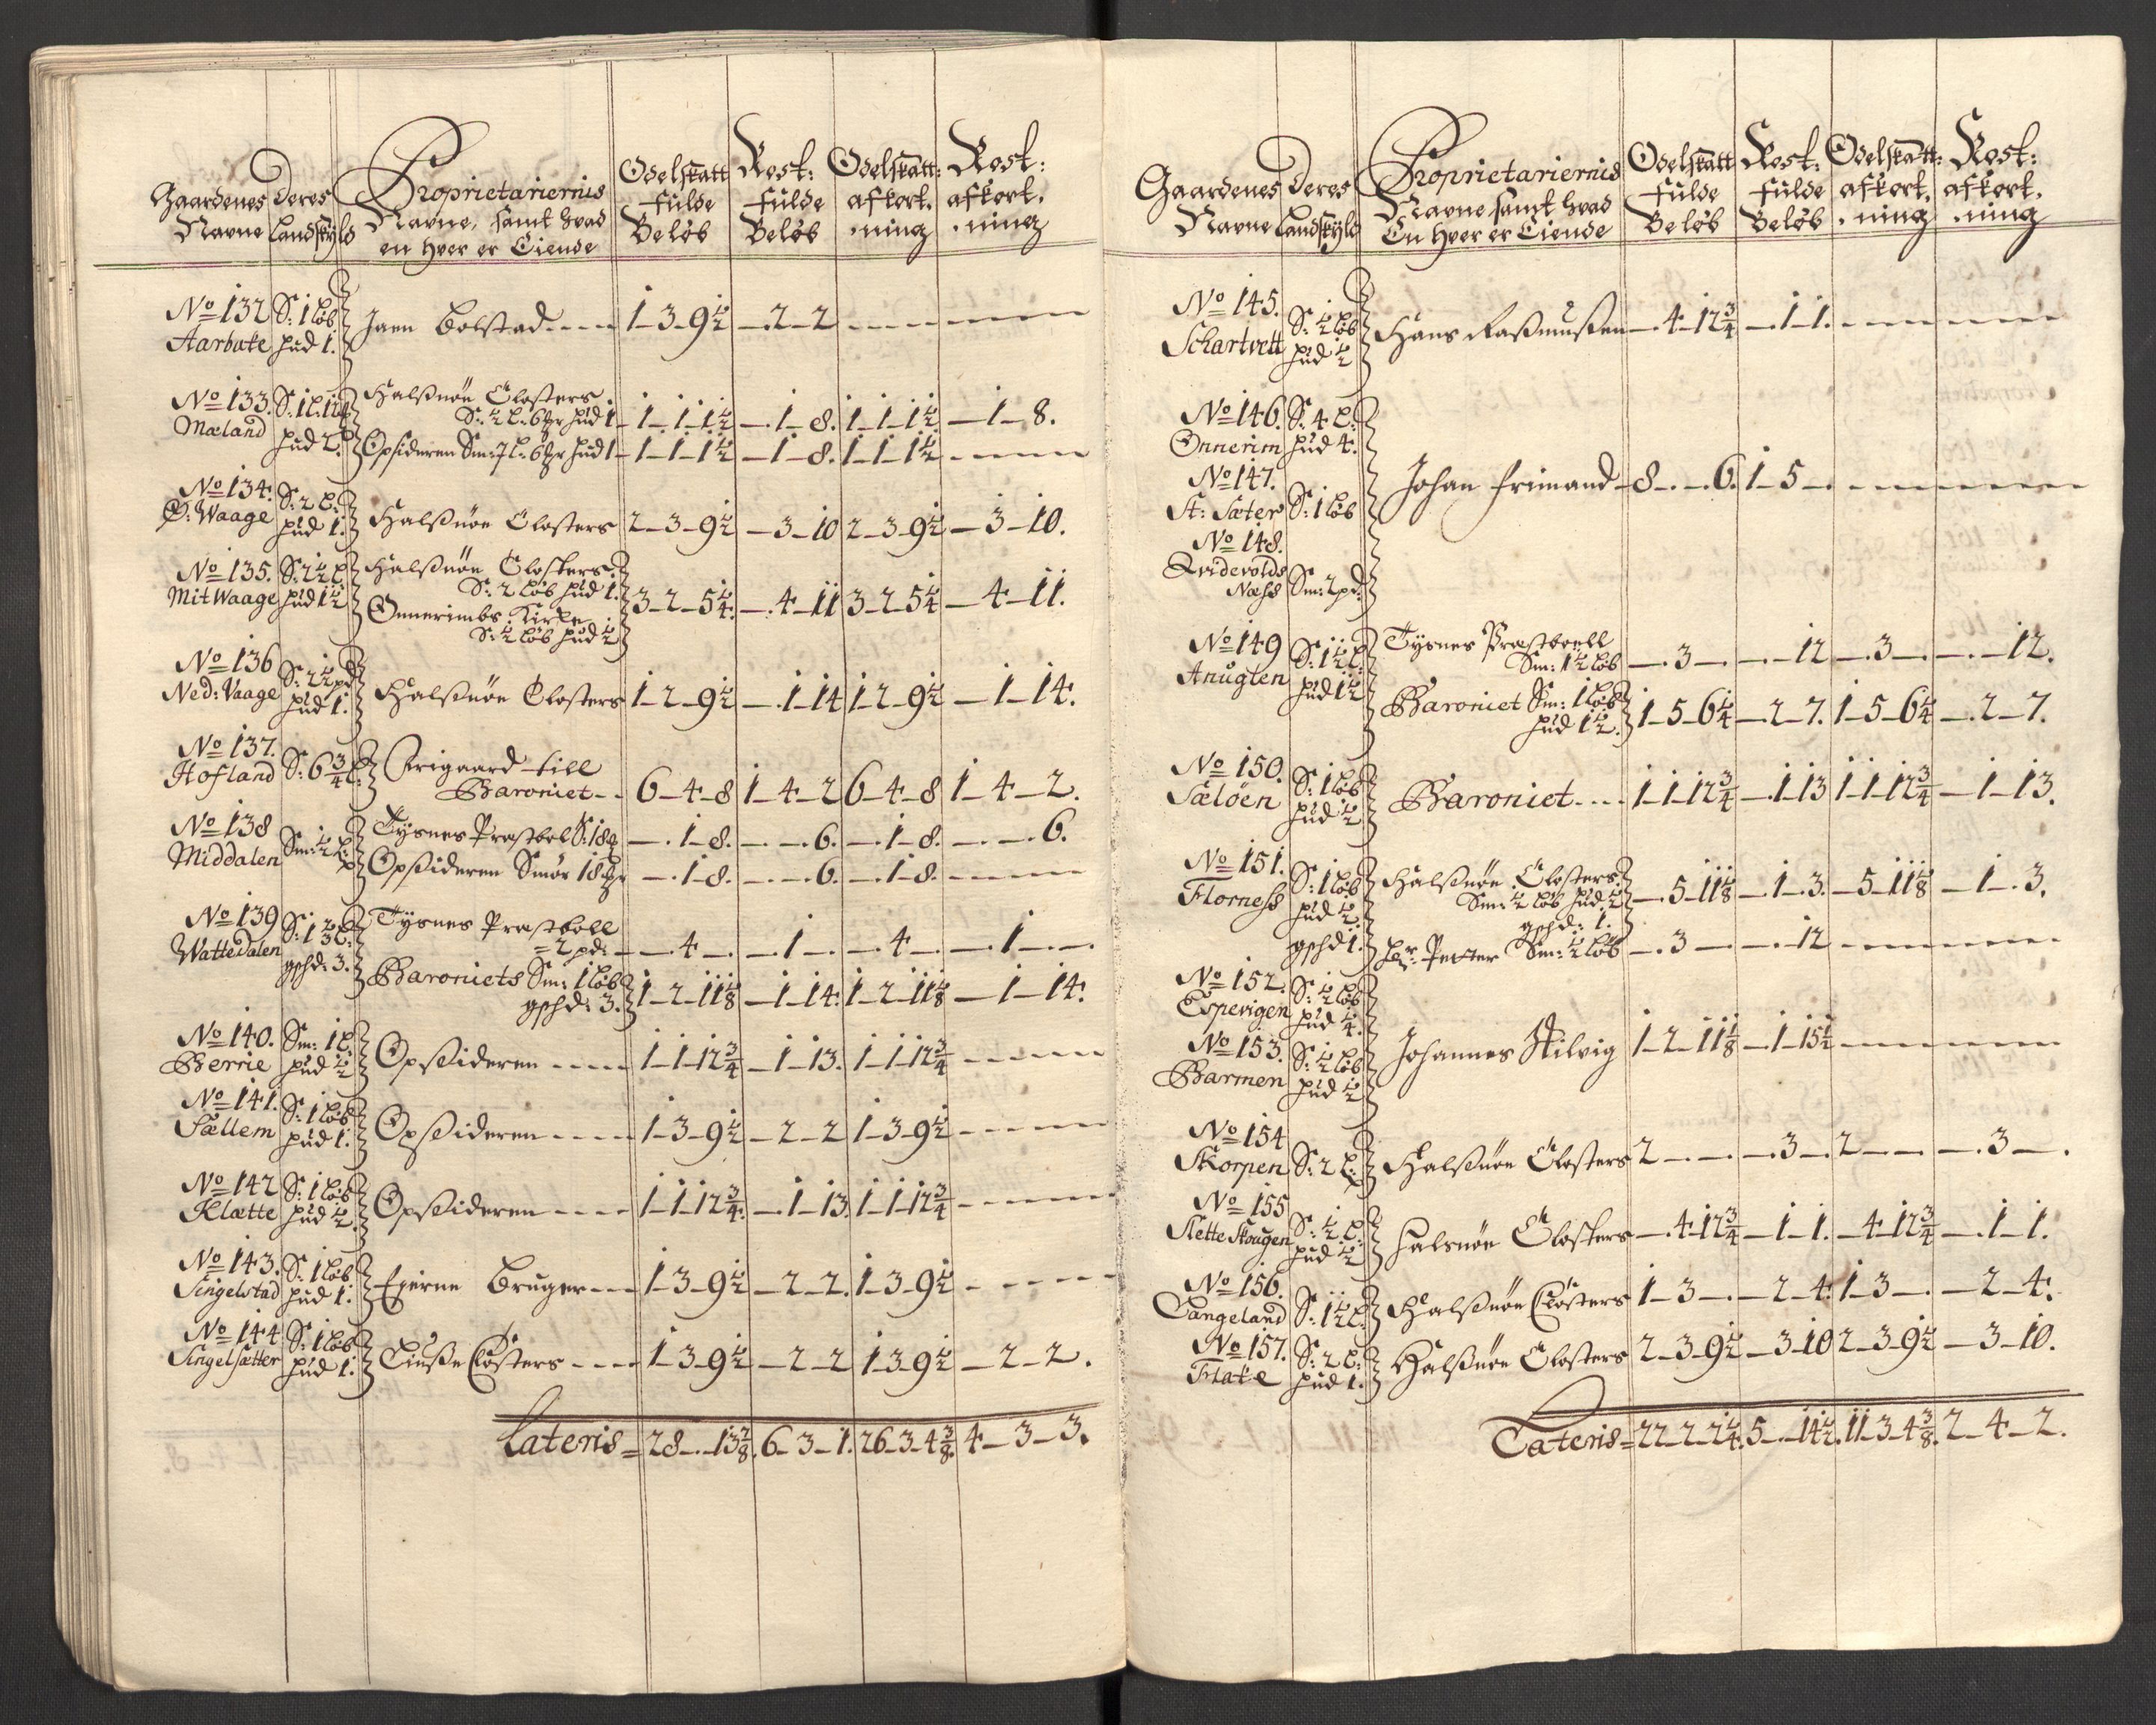 Gaardenes Navne | deres Landskyld | Proprietariernis Navne, samt hvad en hver er Eiende | Odelskatt fulde Beløb | Rost: fulde Beløb | Odelskatt: afkort. ning | Rost: afkort. ning
No 132 Aarbake | S: 1 løb hud 1. | Jaen Bolstad | 1-3-9½ | -2-2
No 133. Mæland | hud 2. | Halsnøe Closters S: ½ L: 6 hud 1 | 1-1-1½ | -1-8. | 1-1-1½ | -1-8.
Opsideren Sm: ½ L: 6 hud 1 | 1-1-1½ | -1-8. | 1-1-1½
No 134. Ø: Waage | S: 2 L: hud 1. | Halsnøe Closters | 2-3-9½ | -3-10 | 2-3-9½ | -3-10.
No 135. Mit Waage | S: 2½ L hud 1½ | Halsnøe Closters S: 2 løb hud 1.
Onnerimbs Kirke S: ½ løb hud ½ | 3-2-5¼ | -4-11 | 3-2-5¼ | -4-11.
No 136 Ned: Vaage | S: 2½ pd hud 1. | Halsnøe Closters | 1-2-9½ | -1-14 | 1-2-9½ | -1-14.
No 137. Hofland | S: 6¾ L: | Frigaard till Baroniet | 6-4-8 | 1-4-2 | 6-4-8 | 1-4-2.
No 138 Middalen | Sm: ½ L: | Tysnes Præstbol S: 18 | -1-8. | -6. | -1-8. | -6.
Opsideren Smør 18 | -1-8. | -6. | -1-8.
No 139 Wattedalen | S: 1⅔ L: gshd: 3. | Tysnes Præstboll = 2 pd: | -4- | -1- | -4- | -1-
Baroniets Sm: 1 løb gshd: 3. | 1-2-11⅛ | -1-14. | 1-2-11⅛ | -1-14.
No 140. Berrie | Sm: 1 L. hud ½ | Opsideren | 1-1-12¾ | -1-13. | 1-1-12¾
No 141. Sællem | S: 1 løb hud 1. | Opsideren | 1-3-9½ | -2-2 | 1-3-9½
No 142 Klætte | S: 1 løb hud ½. | Opsideren | 1-1-12¾. | -1-13. | 1-1-12¾
No 143. Singelstad | S: 1 løb. hud 1. | Ejerne Bruger | 1-3-9½ | -2-2. | 1-3-9½
No 144 Singelsætter | S: 1 løb hud 1. | Liusse Closters | 1-3-9½ | -2-2 | 1-3-9½ | -2-2.
Lateris = 28-13⅞. | 6-3-1. | 26-3-4⅜. | 4-3-3.
Gaardenes Navne | deres Landskyld | Proprietariernis Navne samt hvad En hver er Eiende | Odelskatt fulde Beløb | Rost: fulde Beløb | Odelskatt: afkort. ning | Rost: afkort. ning
No 145. Schartvett | S: ½ løb hud ½ | Hans Rasmussen | -4-12¾ | -1-1.
No 146. Onnerim | S: 4 L: hud 4.
No 147. St: Sæter | S: 1 løb | Johan Frimand | 8-6. | 1-5-
No 148. Qvidevolds Næss | Sm: 2 pd:
No 149 Anugten | S: 1½ L: hud 1½ | Tysnes Præstboell Sm: 1½ løb | -3- | -12 | -3- | -12.
Baroniet Sm: 1 løb hud 1½. | 1-5-6¼ | -2-7. | 1-5-6¼ | -2-7.
No 150. Sæløen | S: 1 løb hud ½ | Baroniet | 1-1-12¾ | -1-13 | 1-1-12¾ | -1-13.
No 151. Florness | S: 1 løb hud ½. gshd 1. | Halsnøe Closters Sm: ½ løb hud ½ gshd: 1. | -5-11⅛ | -1-3. | -5-11⅛ | -1-3.
Hr: Petter Sm: ½ løb | -3- | -12
No 152. Espevigen | S: ½ løb hud ¼.
No 153. Barmen | S: ½ løb hud ½ | Johannes Hilvig | 1-2-11⅛ | -1-15½
No 154 Skorpen | S: 2 L: | Halsnøe Closters | 2- | -3- | 2- | -3-.
No 155 Slette Skougen | S: ½ L: hud ½ | Halsnøe Closters | -4-12¾ | -1-1. | -4-12¾ | -1-1.
No 156. Langeland | S: 1½ L: | Halsnøe Closters | 1-3- | -2-4. | 1-3- | -2-4.
No 157. Flate | S: 2 L: hud 1. | Halsnøe Closters | 2-3-9½ | -3-10 | 2-3-9½ | -3-10.
Lateris = 22-2-2¼. | 5-14½. | 11-3-4⅜. | 2-4-2.